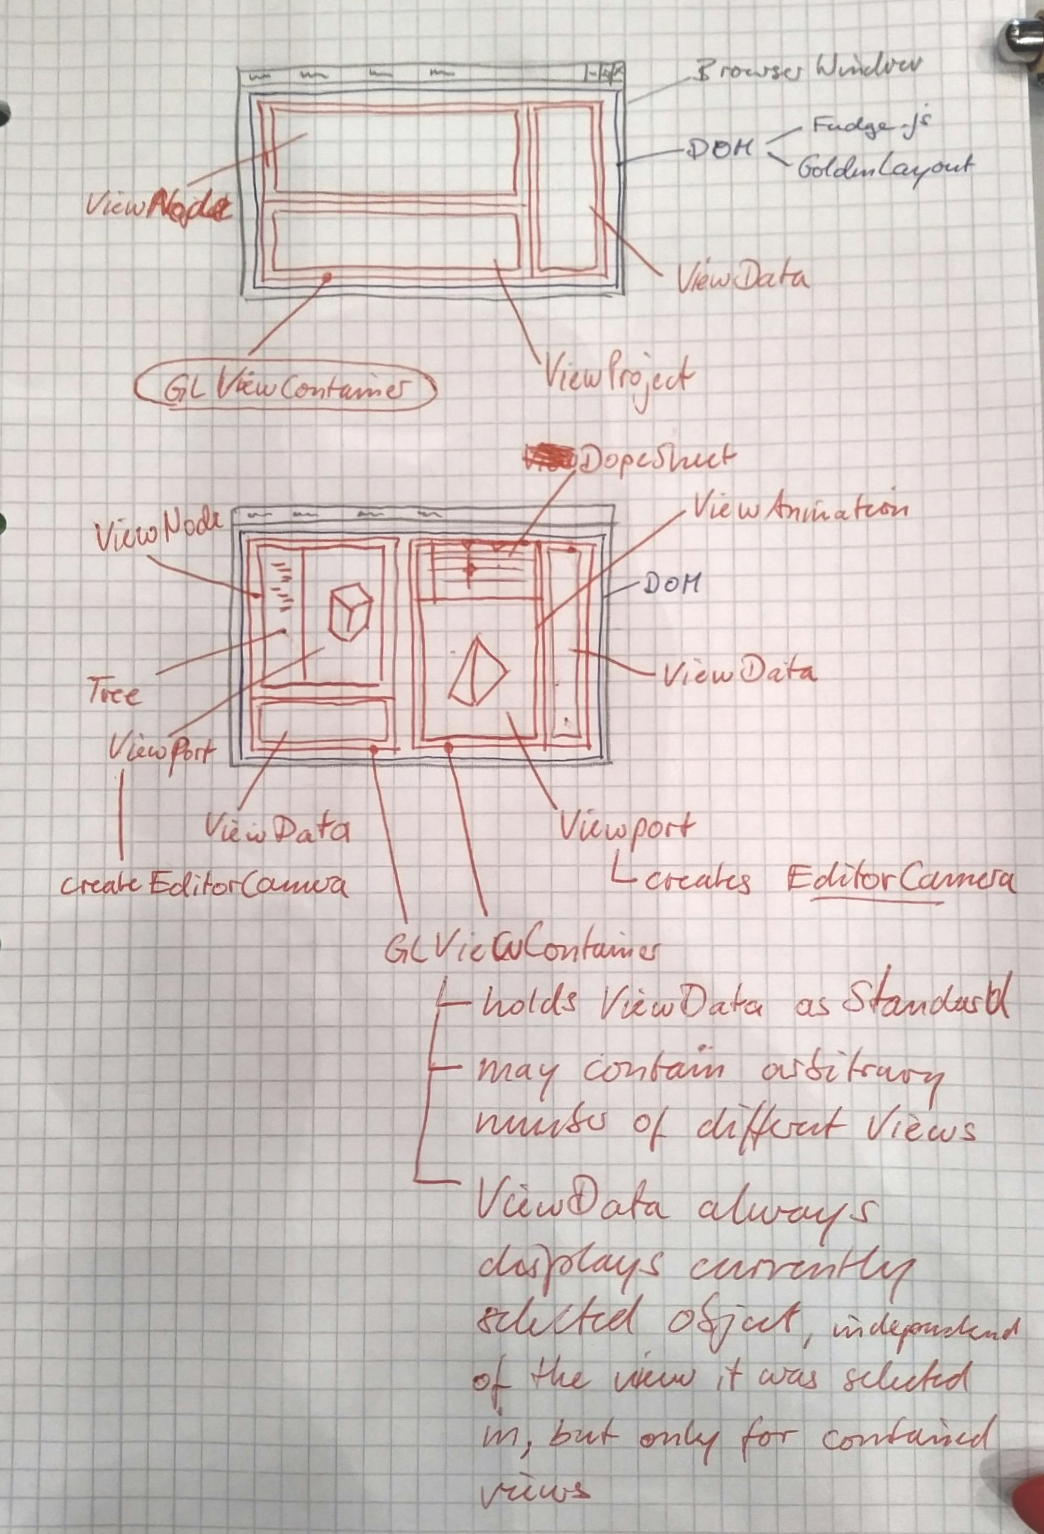 BrowserWindow
Fudge.js
DOM
GoldenLayout
ViewNode
ViewData
GL ViewContainer
ViewProject
DopeSheet
ViewAnimation
ViewNode
DOM
ViewData
Tree
ViewPort
ViewData
Viewport
createEditorCamera
creates EditorCamera
GLViewContainer
holds ViewData as Standard
may contain arbitrary
number of different Views
ViewData always
displays currently
selected object, independend
of the view it was selected
in, but only for contained
views